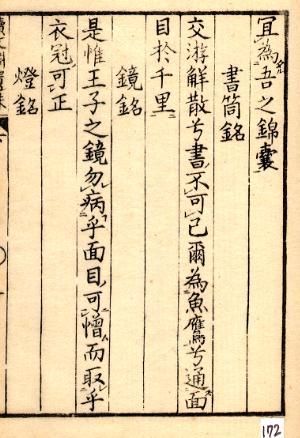 宜為吾之錦囊
書筒銘
交游解散兮書不可已爾為魚鴈兮通面
目於千里
鏡銘
是惟王子之鏡勿病乎面目可憎而取乎
衣冠可正
燈銘
172